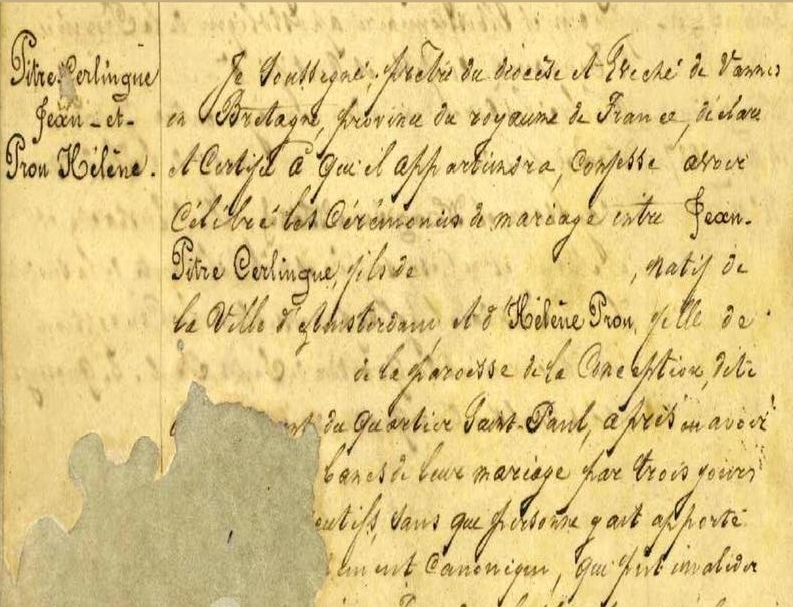 Pitre Cerlingue
Jean - et -
Prou Hélène.
Je Soussigné, prêtre du diocèse et Evêché de Vannes
en Bretagne, province du royaume de France, déclare
et Certifie à qui il appartiendra, confesse avoir
Célébré les Cérémonies de mariage entre Jean-
Pitre Cerlingue, fils de , natif de
la Ville d'Amsterdam et d'Hélène Prou, fille de
de la paroisse de la Conception, dite
du quartier Saint-Paul, après en avoir
bancs de leur mariage par trois jours
cutifs, sans que personne y ait apporté
ment Canonique, qui put invalider